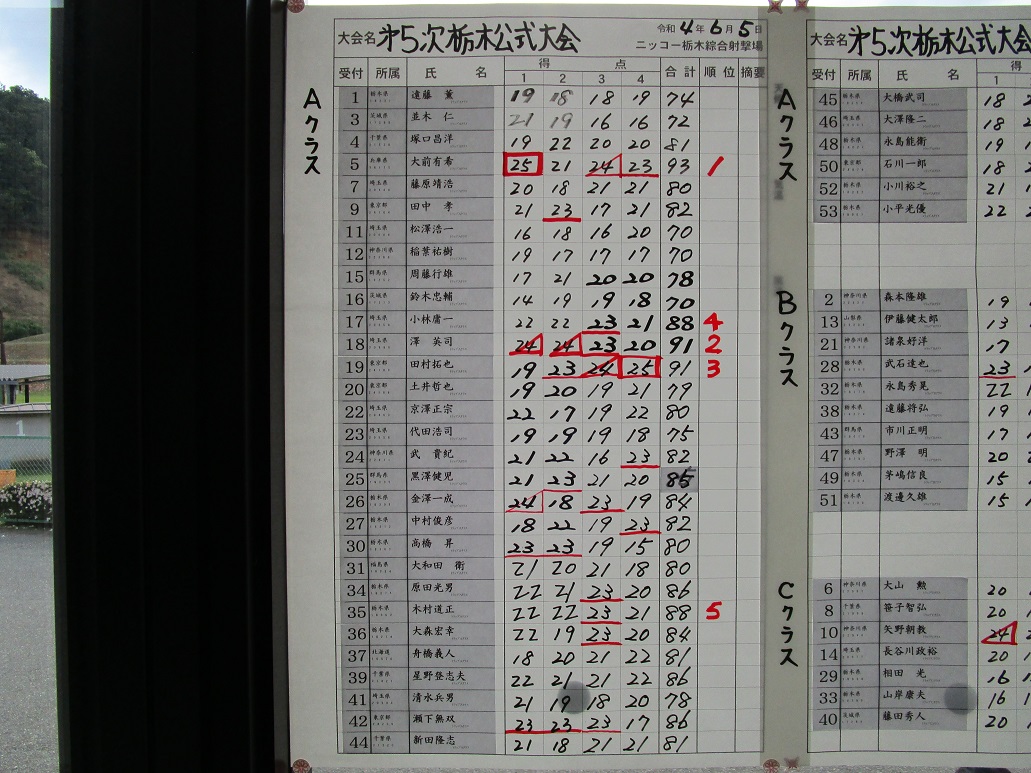 大会名 第5次栃木公式大会 令和4年6月5日
ニッコー栃木綜合射撃場
受付 所属 氏名 得点 合計 順位 摘要
1 2 3 4
Aクラス
1 栃木県 遠藤 薫 19 18 18 19 74
3 茨城県 並木 仁 21 19 16 16 72
4 千葉県 塚口昌洋 19 22 20 20 81
5 兵庫県 大前有希 25 21 24 23 93 1
7 埼玉県 藤原靖浩 20 18 21 21 80
9 東京都 田中 孝 21 23 17 21 82
11 埼玉県 松澤浩一 16 18 16 20 70
12 神奈川県 稲葉祐樹 19 17 17 17 70
15 群馬県 周藤行雄 17 21 20 20 78
16 茨城県 鈴木忠輔 14 19 19 18 70
17 埼玉県 小林庸一 22 22 23 21 88 4
18 埼玉県 澤 英司 24 24 23 20 91 2
19 東京都 田村拓也 19 23 24 25 91 3
20 東京都 土井哲也 19 20 19 21 79
22 埼玉県 京澤正宗 22 17 19 22 80
23 埼玉県 代田浩司 19 19 19 18 75
24 神奈川県 武 貴紀 21 22 16 23 82
25 群馬県 黒澤健児 21 23 21 20 85
26 栃木県 金澤一成 24 18 23 19 84
27 栃木県 中村俊彦 18 22 19 23 82
30 栃木県 高橋 昇 23 23 19 15 80
31 福島県 大和田 衛 21 20 21 18 80
34 栃木県 原田光男 22 21 23 20 86
35 栃木県 木村道正 22 22 23 21 88 5
36 栃木県 大森宏幸 22 19 23 20 84
37 北海道 舟橋義人 18 20 21 22 81
39 千葉県 星野登志夫 22 21 21 22 86
41 埼玉県 清水兵男 21 19 18 20 78
42 東京都 瀬下無双 23 23 23 17 86
44 千葉県 新田隆志 21 18 21 21 81
大会名 第5次栃木公式大会
受付 所属 氏名 得
1
Aクラス
45 栃木県 大橋武司 18
46 埼玉県 大澤隆二 18
48 栃木県 永島能衛 19
50 東京都 石川一郎 18
52 栃木県 小川裕之 21
53 栃木県 小平光優 22
Bクラス
2 神奈川県 森本隆雄 19
13 山梨県 伊藤健太郎 13
21 神奈川県 諸泉好洋 17
28 栃木県 武石達也 23
32 栃木県 永島秀晃 22
38 栃木県 遠藤将弘 19
43 群馬県 市川正明 17
47 栃木県 野澤 明 20
49 栃木県 茅嶋信良 15
51 栃木県 渡邊久雄 15
Cクラス
6 神奈川県 大山 勲 20
8 千葉県 笹子智弘 20
10 神奈川県 矢野朝教 24
14 埼玉県 長谷川政裕 20
29 栃木県 相田 光 16
33 栃木県 山岸康夫 16
40 茨城県 藤田秀人 20
1